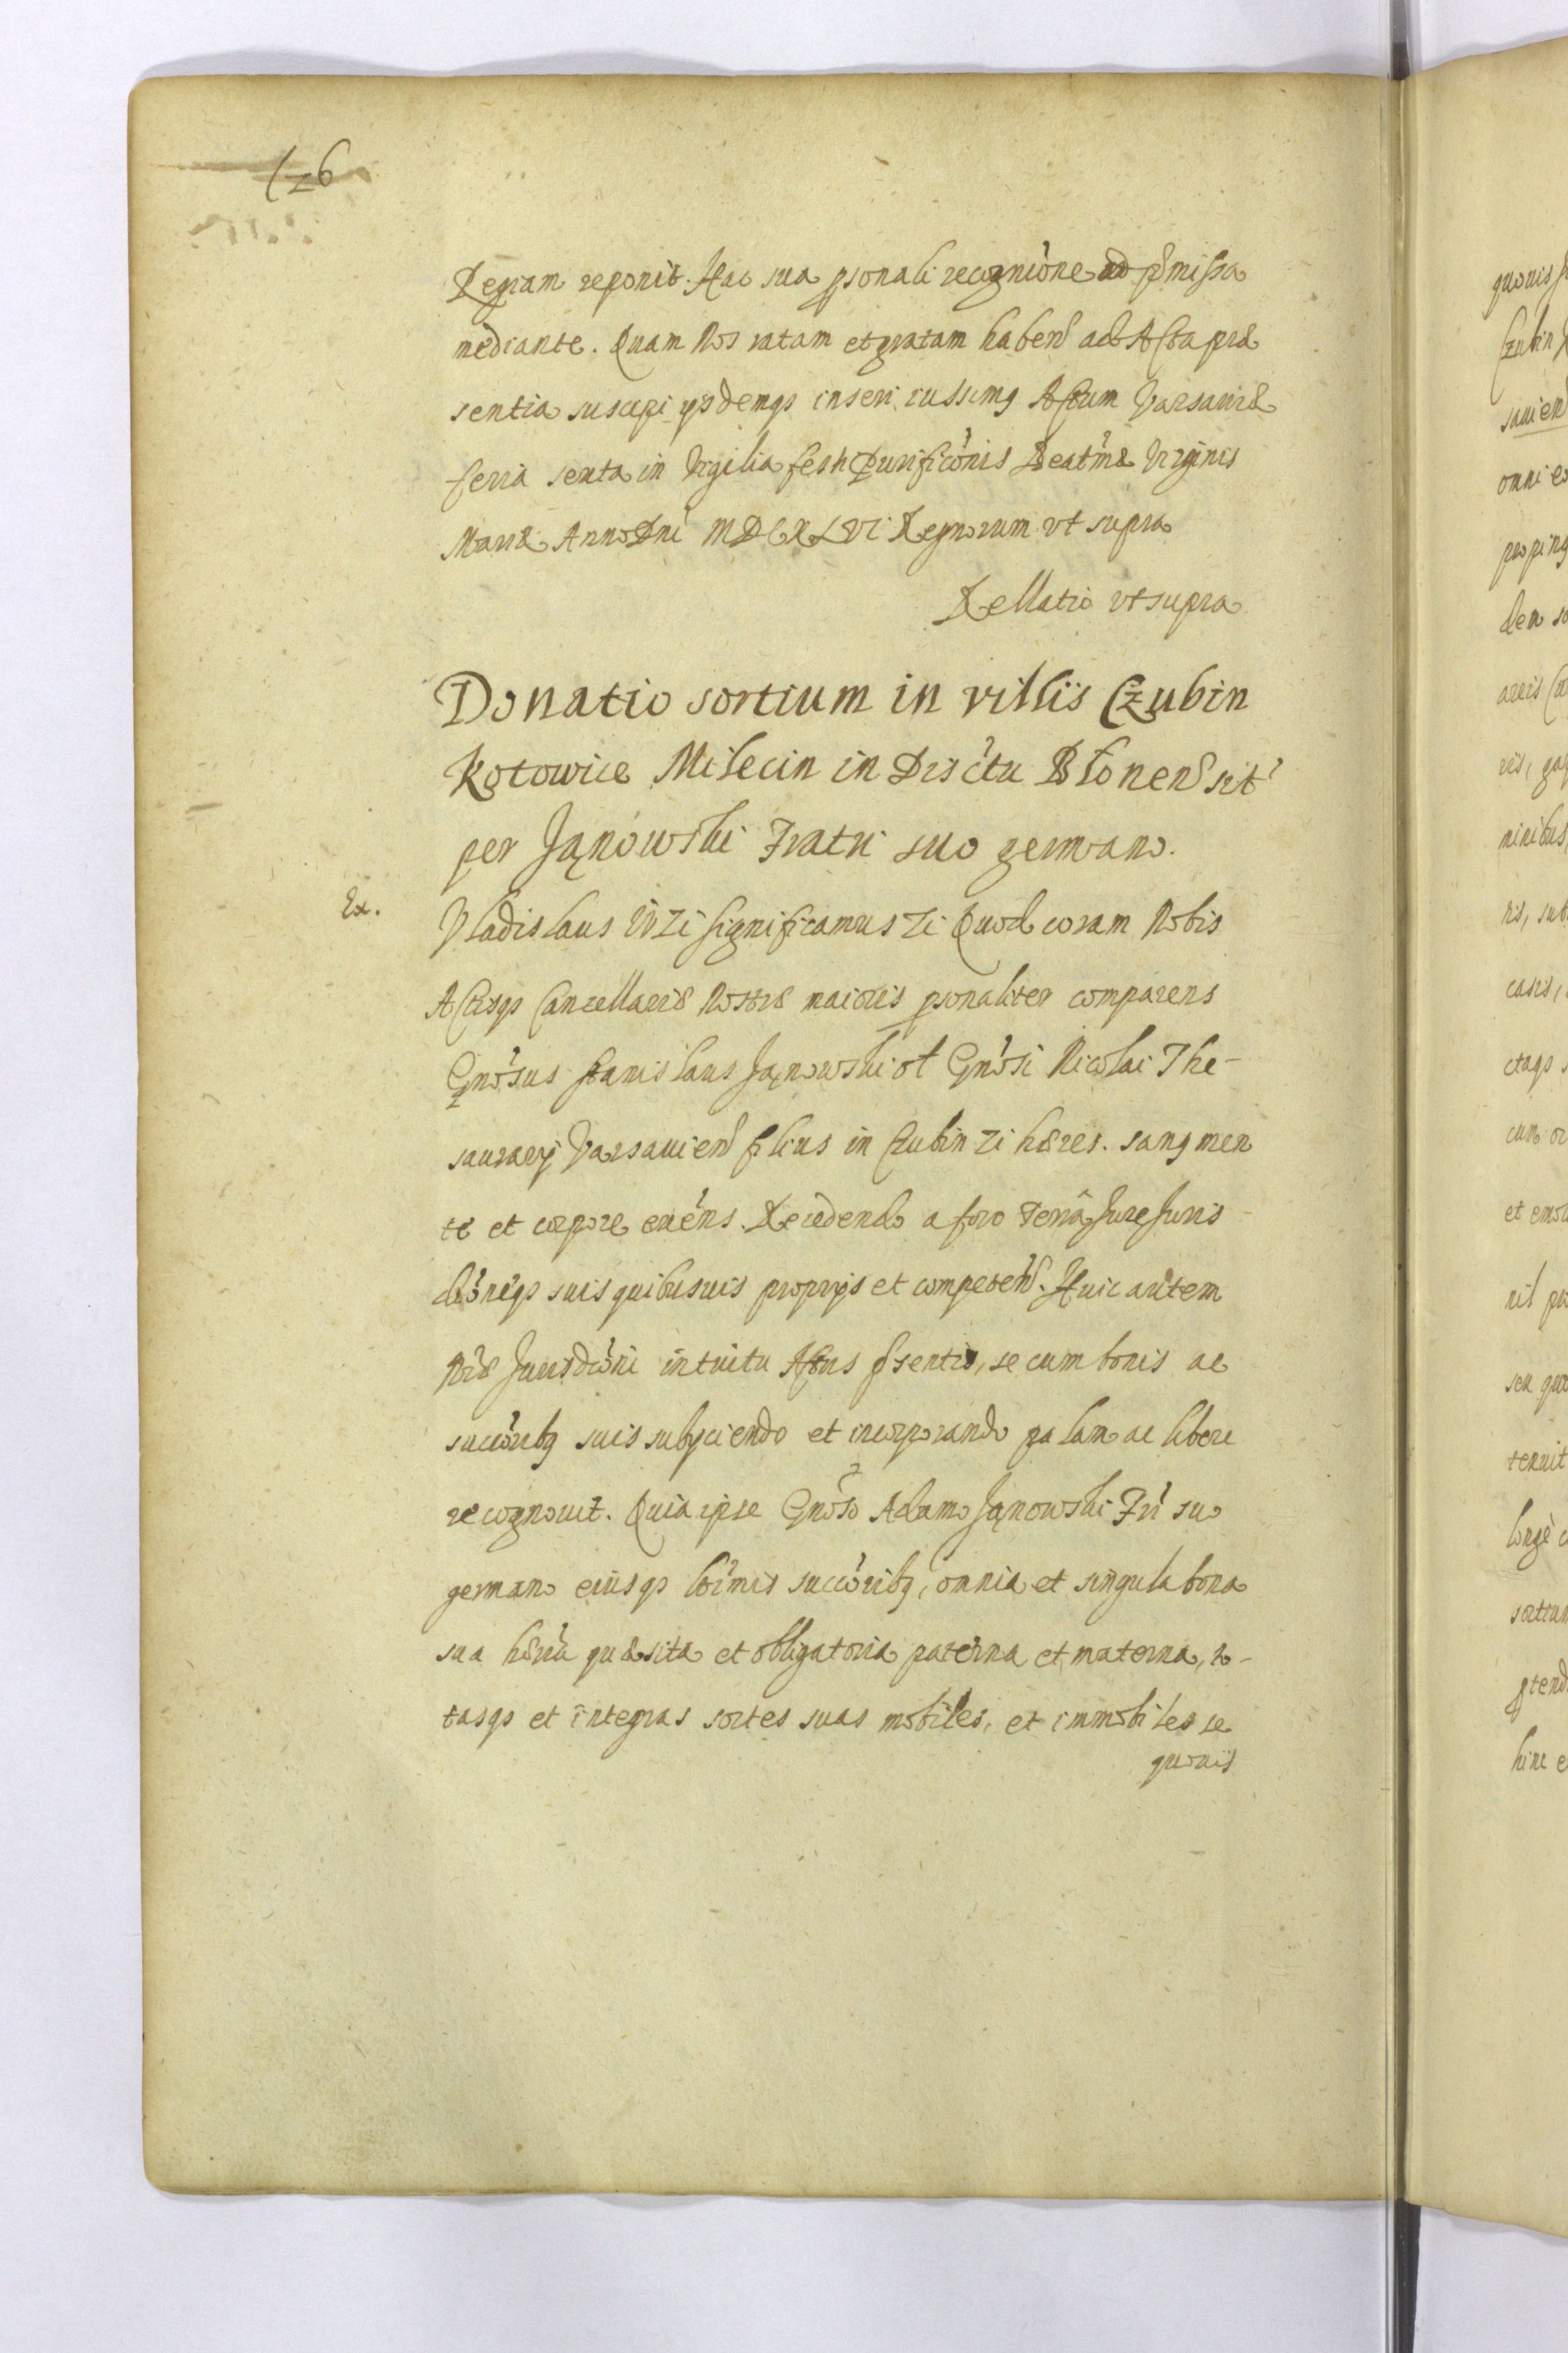 126
Regiam reponit. Hac sua psonali recognióne ad pmissa
mediante. Quam Nos ratam et gratam haben ad Acta præ
sentia suscipi ysdemqs inseri iussimg Actum Varsaviæ
feria sexta in Vigilia festi Purificónis Beatmæ Virginis
Mariæ Anno Dni MDCXLVI Regnorum vt supra
Rellatio vt supra
Donatio sortium in villiis Czubin
Kotowice Milecin in Disctu Błonen sit
per Janowski Fratri suo germano.
Ex.
Vladislaus IV zi significamus zi Quod coram Nobis
Actisqs Cancellariæ Nostræ maioris psonaliter comparens
Gnosus Stanislaus Janowski ol Gnosi Nicolai The-
saurarij Varsavien filius in Czubin zi hæres. sang men
te et corpore exens. Recedendo a foro Terra Jure Juris
dóneqs suis quibusuis proprijs et competen. Huic autem
Nræ Jurisdióni intuitu Actus psentis, se cum bonis ac
succóribg suis subyciendo et incorporando palam ac libere
recognouit. Quia ipse Gnoso Adamo Janowski Fri suo
germano eiusqs ltimis succóribg, omnia et singula bona
sua hæria quæsita et obligatoria paterna et materna, to-
tasqs et integras sortes suas mobiles, et immobiles se
quouis
quouis
Czubin
sauien
omni
proping